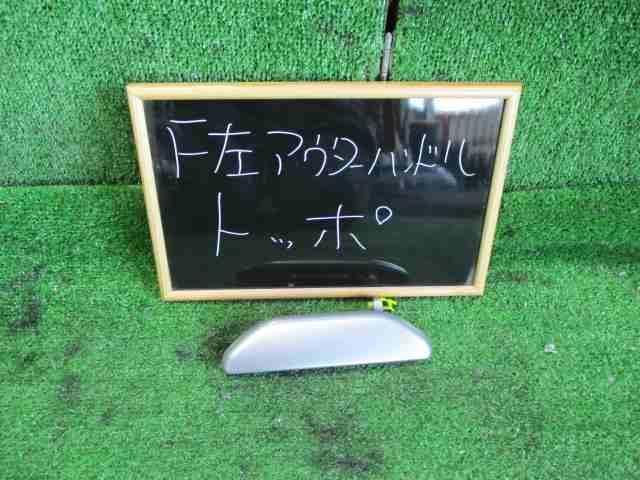 F左アウターハンドル
トッポ